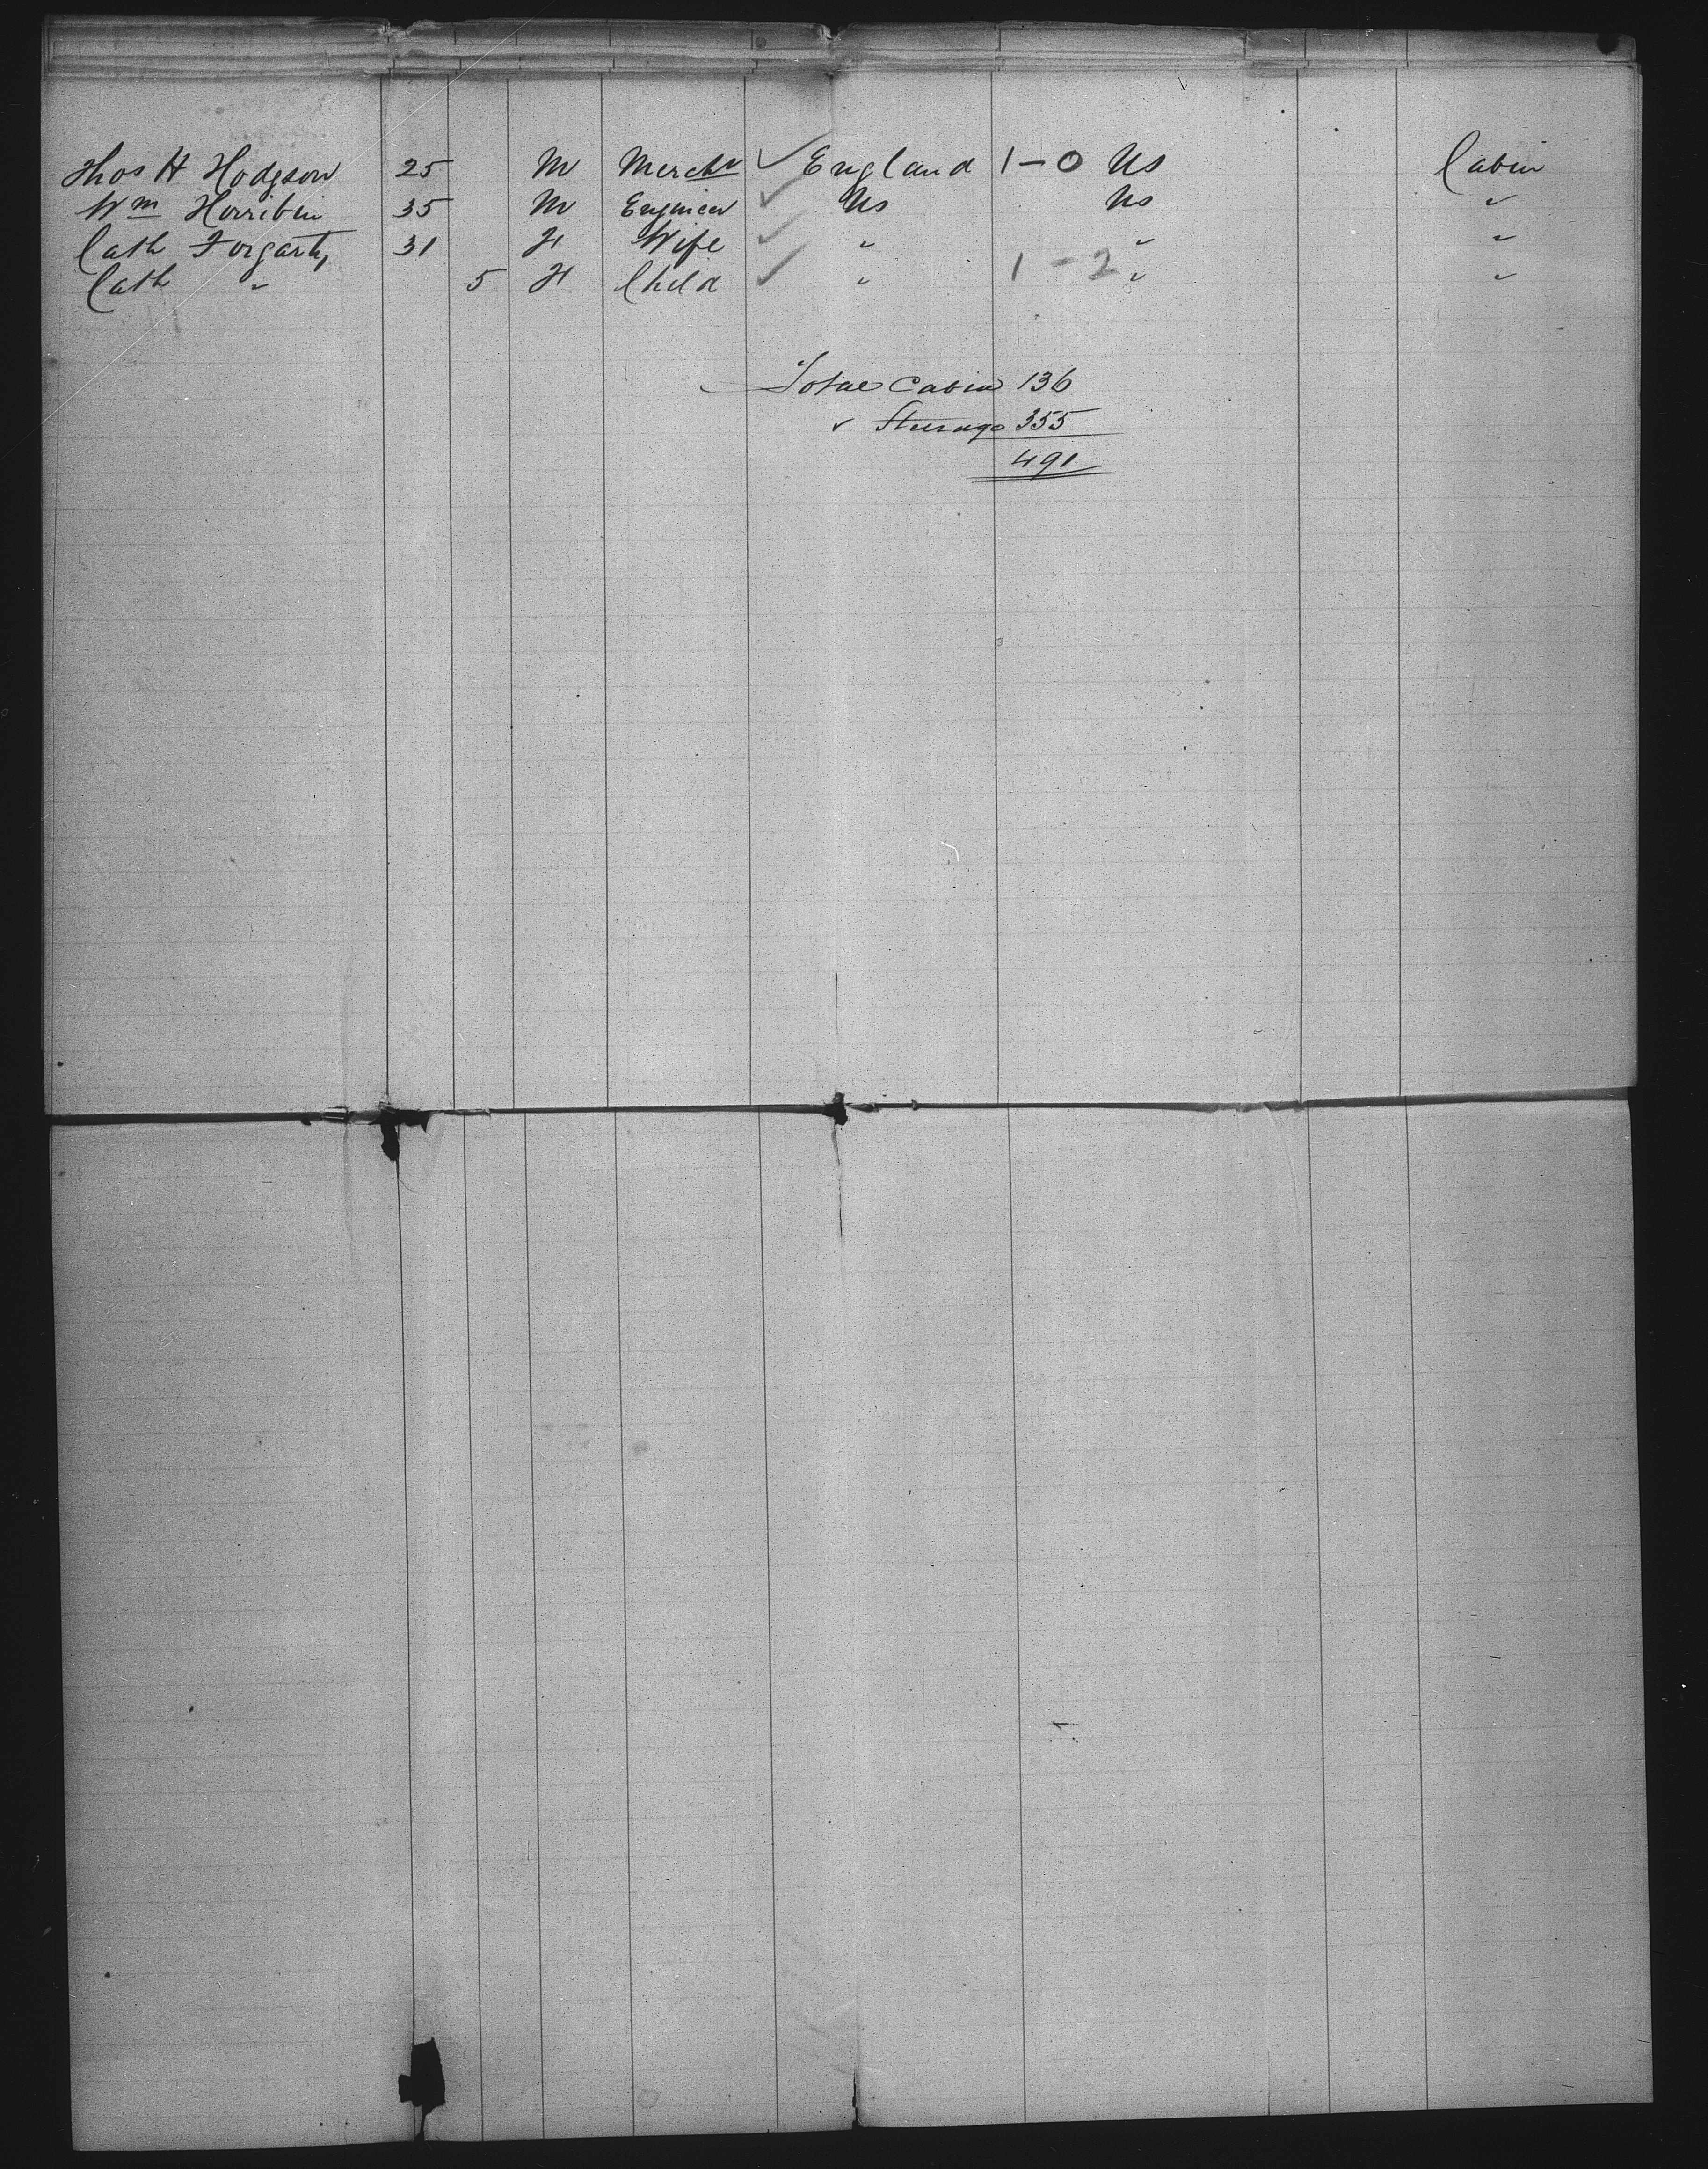 Thos H Hodgson 25 M Mercht ✓ England 1-0 Us Cabin
Wm Horribin 35 M Engineer ✓ Us Us "
Cath Forgarty 31 F Wife ✓ " " "
Cath " 5 F Child ✓ " 1-2 " "
Total Cabin 136
" Steerage 355
491